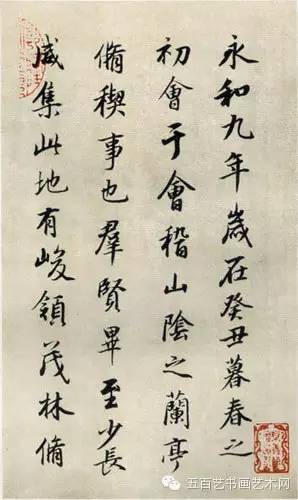 永和九年歲在癸丑暮春之
初會于會稽山陰之蘭亭
脩稧事也羣賢畢至少長
咸集此地有峻領茂林脩
五百艺书画艺术网